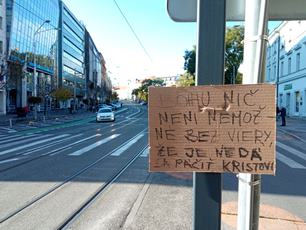 BOHU NIČ
NENÍ NEMOŽ
NÉ BEZ VIERY,
ŽE JE NEDÁ
SA PÁČIŤ KRISTOVI